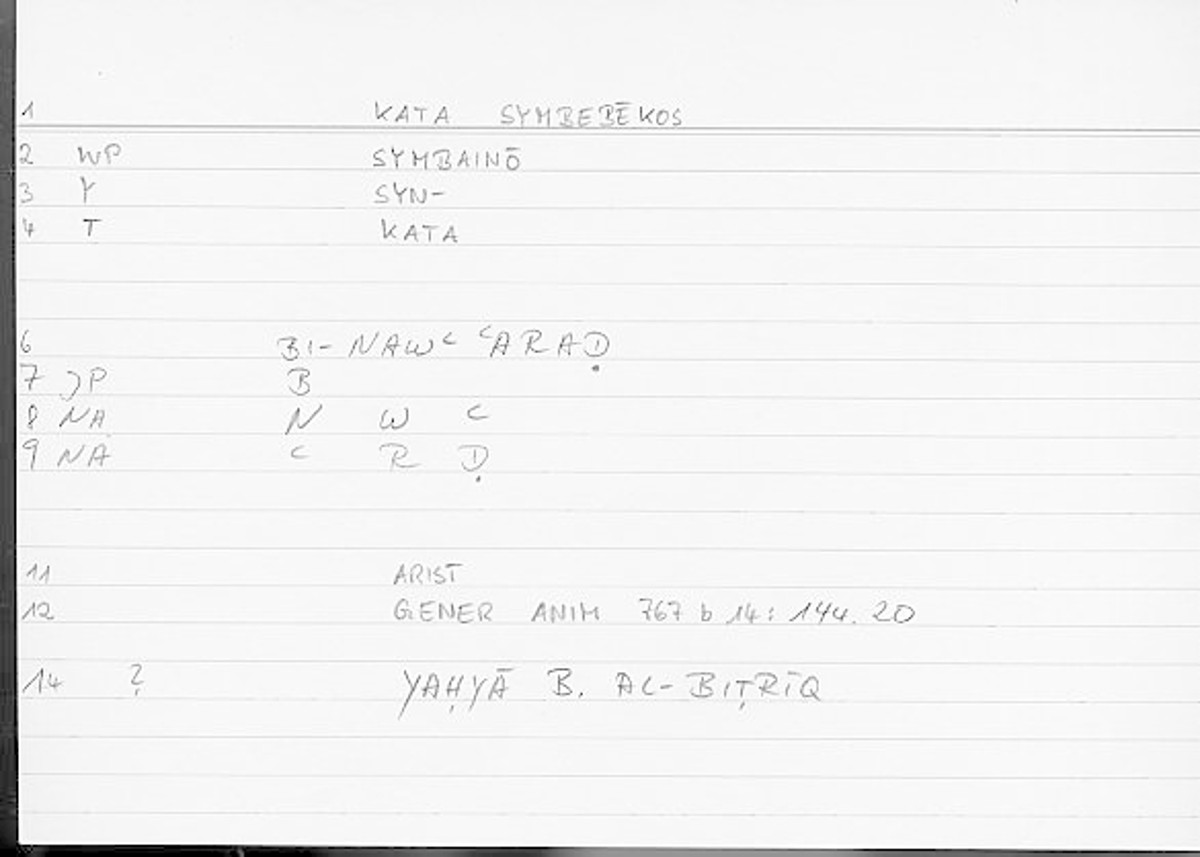 1 KATA SYMBEBĒKOS
2 WP SYMBAINŌ
3 Y SYN-
4 T KATA
6 BI- NAWʿ ʿARAḌ
7 JP B
8 NA N W ʿ
9 NA ʿ R Ḍ
11 ARIST
12 GENER ANIM 767 b 14: 144.20
14 ? YAḤYĀ B. AL-BIṬRĪQ